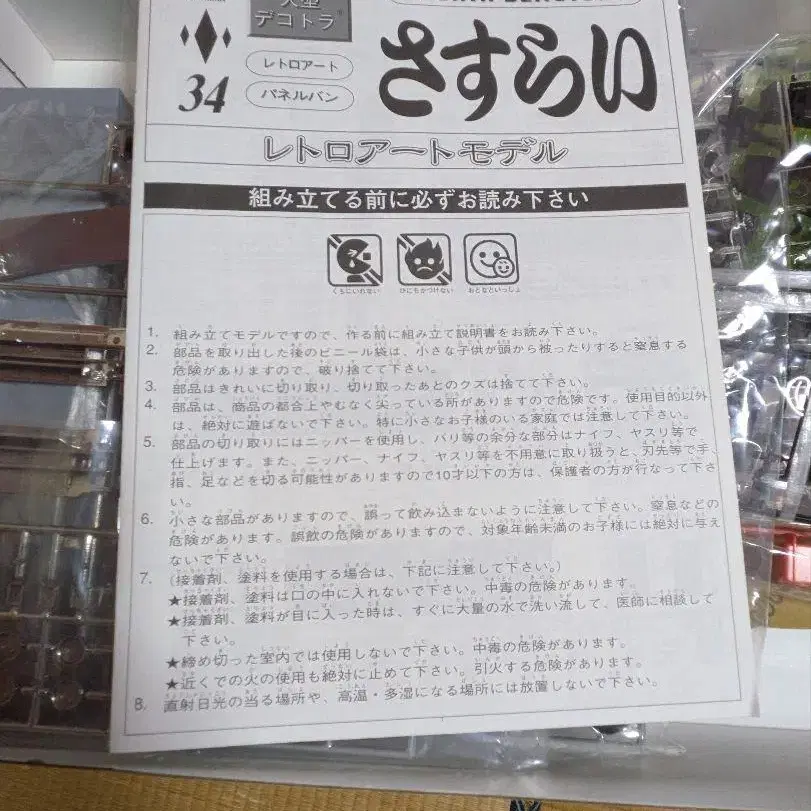 大型
デコトラ
34
レトロアート
パネルバン
さすらい
レトロアートモデル
組み立てる前に必ずお読み下さい
くちにいれない
ひにちかづけない
おとなといっしょ
1. 組み立てモデルですので、作る前に組み立て説明書をお読み下さい。
2. 部品を取り出した後のビニール袋は、小さな子供が頭から被ったりすると窒息する
危険がありますので、破り捨てて下さい。
3. 部品はきれいに切り取り、切り取ったあとのクズは捨てて下さい。
4. 部品は、商品の都合上やむなく尖っている所がありますので危険です。使用目的以外
は、絶対に遊ばないで下さい。特に小さなお子様のいる家庭では注意して下さい。
5. 部品の切り取りにはニッパーを使用し、バリ等の余分な部分はナイフ、ヤスリ等で
仕上げます。また、ニッパー、ナイフ、ヤスリ等を不用意に取り扱うと、刃先等で手、
指、足などを切る可能性がありますので10才以下の方は、保護者の方が行なって下さ
い。
6. 小さな部品がありますので、誤って飲み込まないように注意して下さい。窒息などの
危険があります。誤飲の危険がありますので、対象年齢未満のお子様には絶対に与え
ないで下さい。
7. (接着剤、塗料を使用する場合は、下記に注意して下さい。)
★接着剤、塗料は口の中に入れないで下さい。中毒の危険があります。
★接着剤、塗料が目に入った時は、すぐに大量の水で洗い流して、医師に相談して
下さい。
★締め切った室内では使用しないで下さい。中毒の危険があります。
★近くでの火の使用も絶対に止めて下さい。引火する危険があります。
8. 直射日光の当る場所や、高温・多湿になる場所には放置しないで下さい。